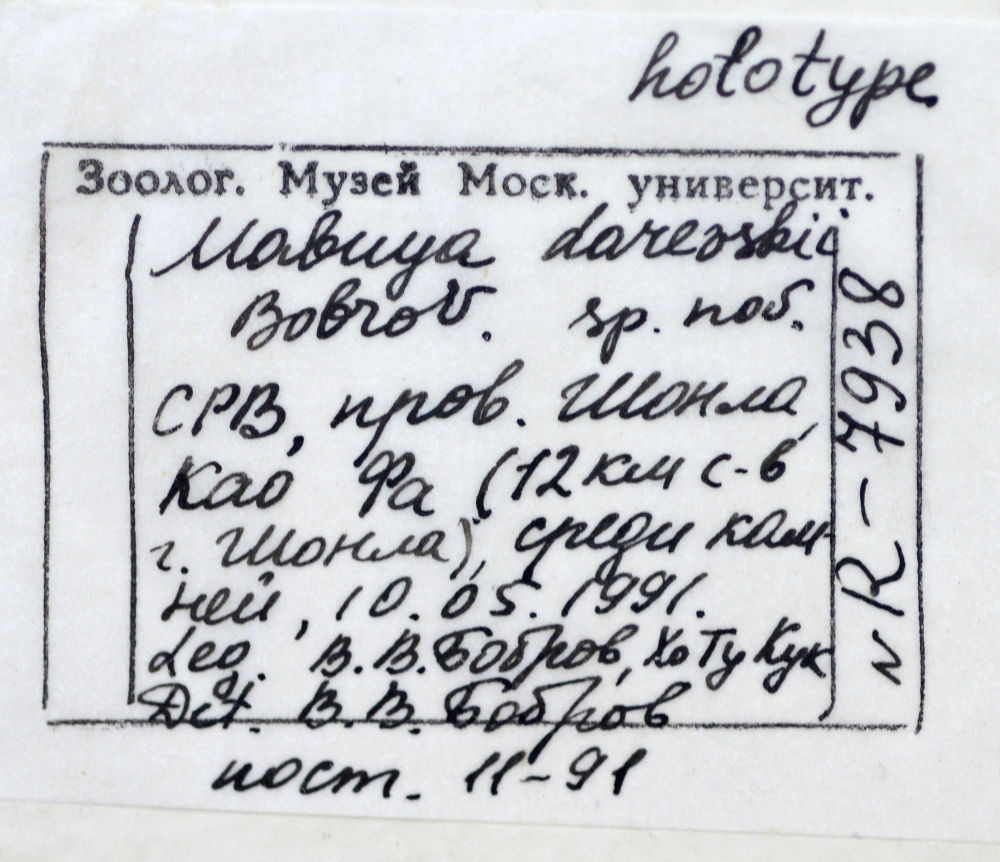 holotype
Зоолог. Музей Моск. университ.
Mabuya darevskii
Bobrov. sp. nov.
СРВ, пров. Шонла,
Као Фа (12 км с-в
г. Шонла), среди кам-
ней, 10.05.1991.
Leg. В.В. Бобров, Хо Ту Кук
Det. В.В. Бобров
пост. 11-91
№ R-7938